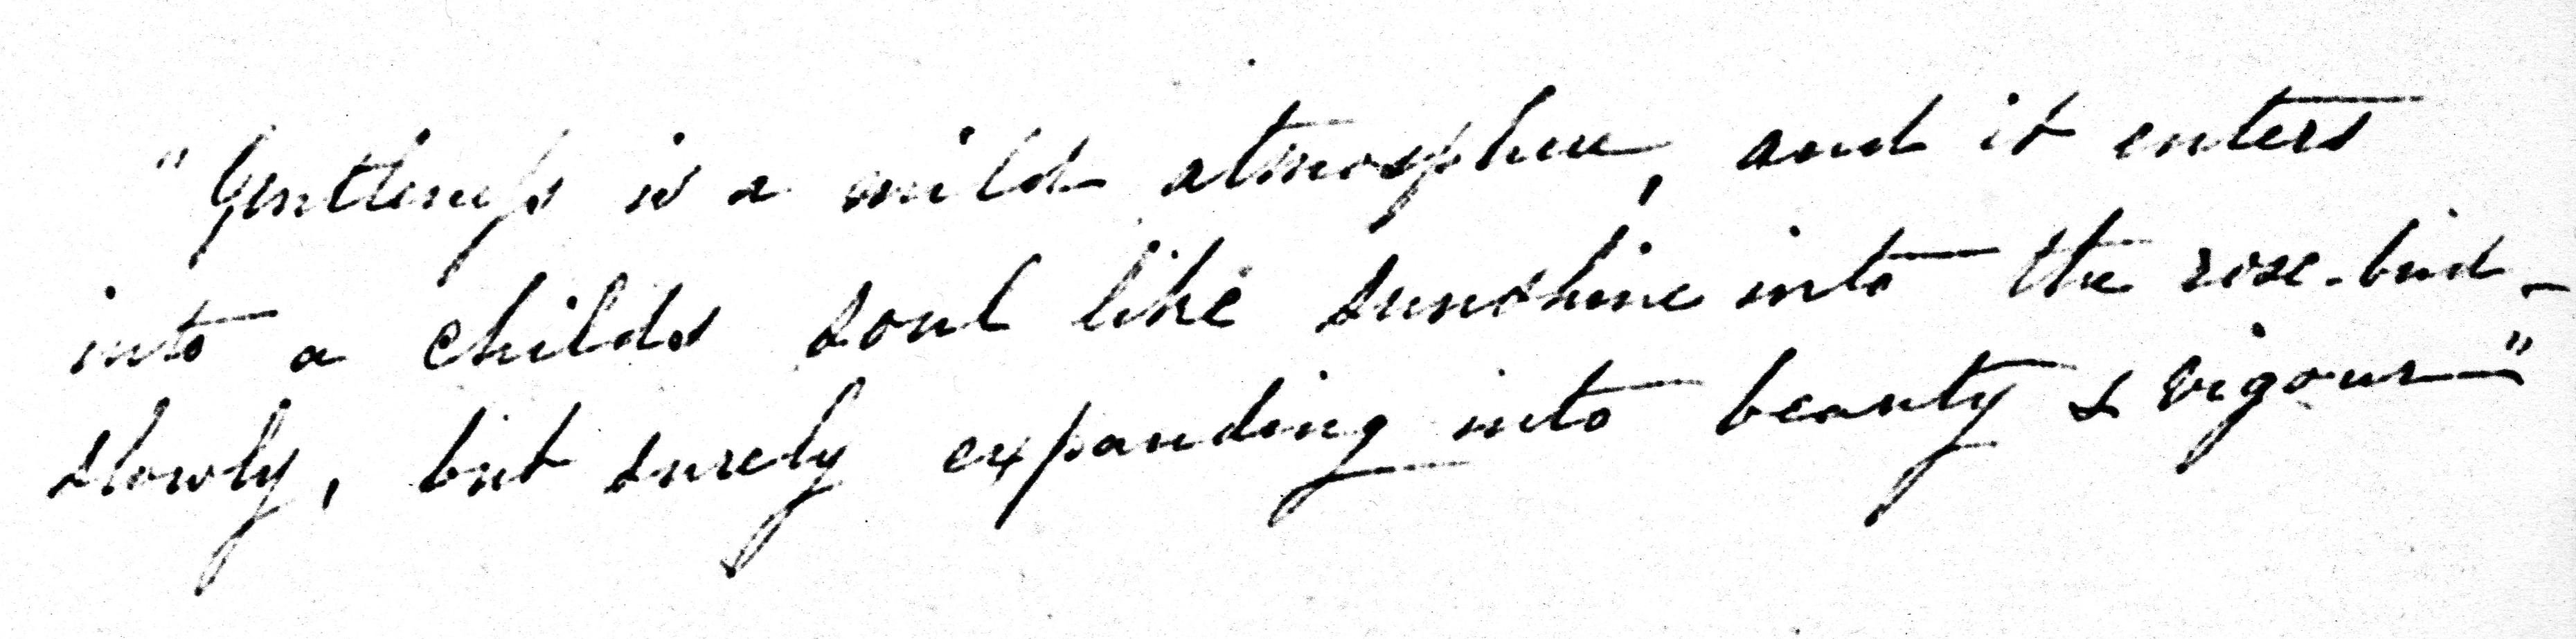 "Gentleness is a mild atmosphere, and it enters
into a childs soul like sunshine into the rose-bud -
slowly, but surely expanding into beauty & vigour—"